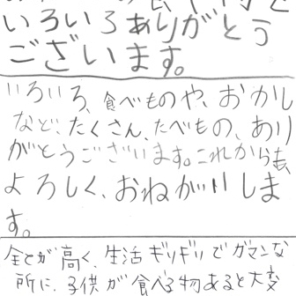 いろいろありがとう
ございます。
いろいろ、食べものや、おかし
など、たくさん、たべもの、あり
がとうございます。これからも、
よろしく、おねがいしま
す。
が高く、生活ギリギリでガマンな
所に、子供が食べる物あると大変